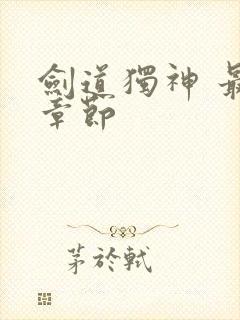 劍道獨神 最
章節
茅於軾